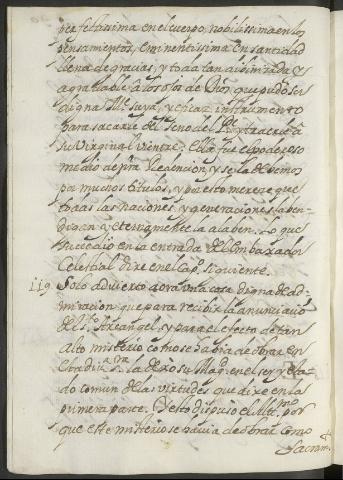 perfectissima en el cuerpo, nobilissima en los
pensamientos, eminentissima en santidad
llena de gracias, y toda tan divinizada y
agradable à los ojos de Dios, que pudo ser
digna Me. suya, y eficaz instrumento
para sacarle del Seno del Pe. y traerle à
su Virginal vientre. Ella fue el poderoso
medio de nra. Redencion, y se la devemos
por muchos titulos, y por esto merece que
todas las naciones y generaciones la ben-
digan y eternamente la alaben. Lo que
succedio en la entrada del Embaxador
Celestial dire en el Capo. siguiente.
119 Solo advierto aora una cosa digna de ad-
miracion, que para recibir la anunciacion
del So. Archangel, y para el efecto de tan
alto misterio como se habia de obrar en
esta divina. sra. la dexo su Magd. en el ser y esta-
do comun de las virtudes que dixe en la
primera parte. Y esto dispuso el Altmo. por
que este misterio se havia de obrar como
Sacram